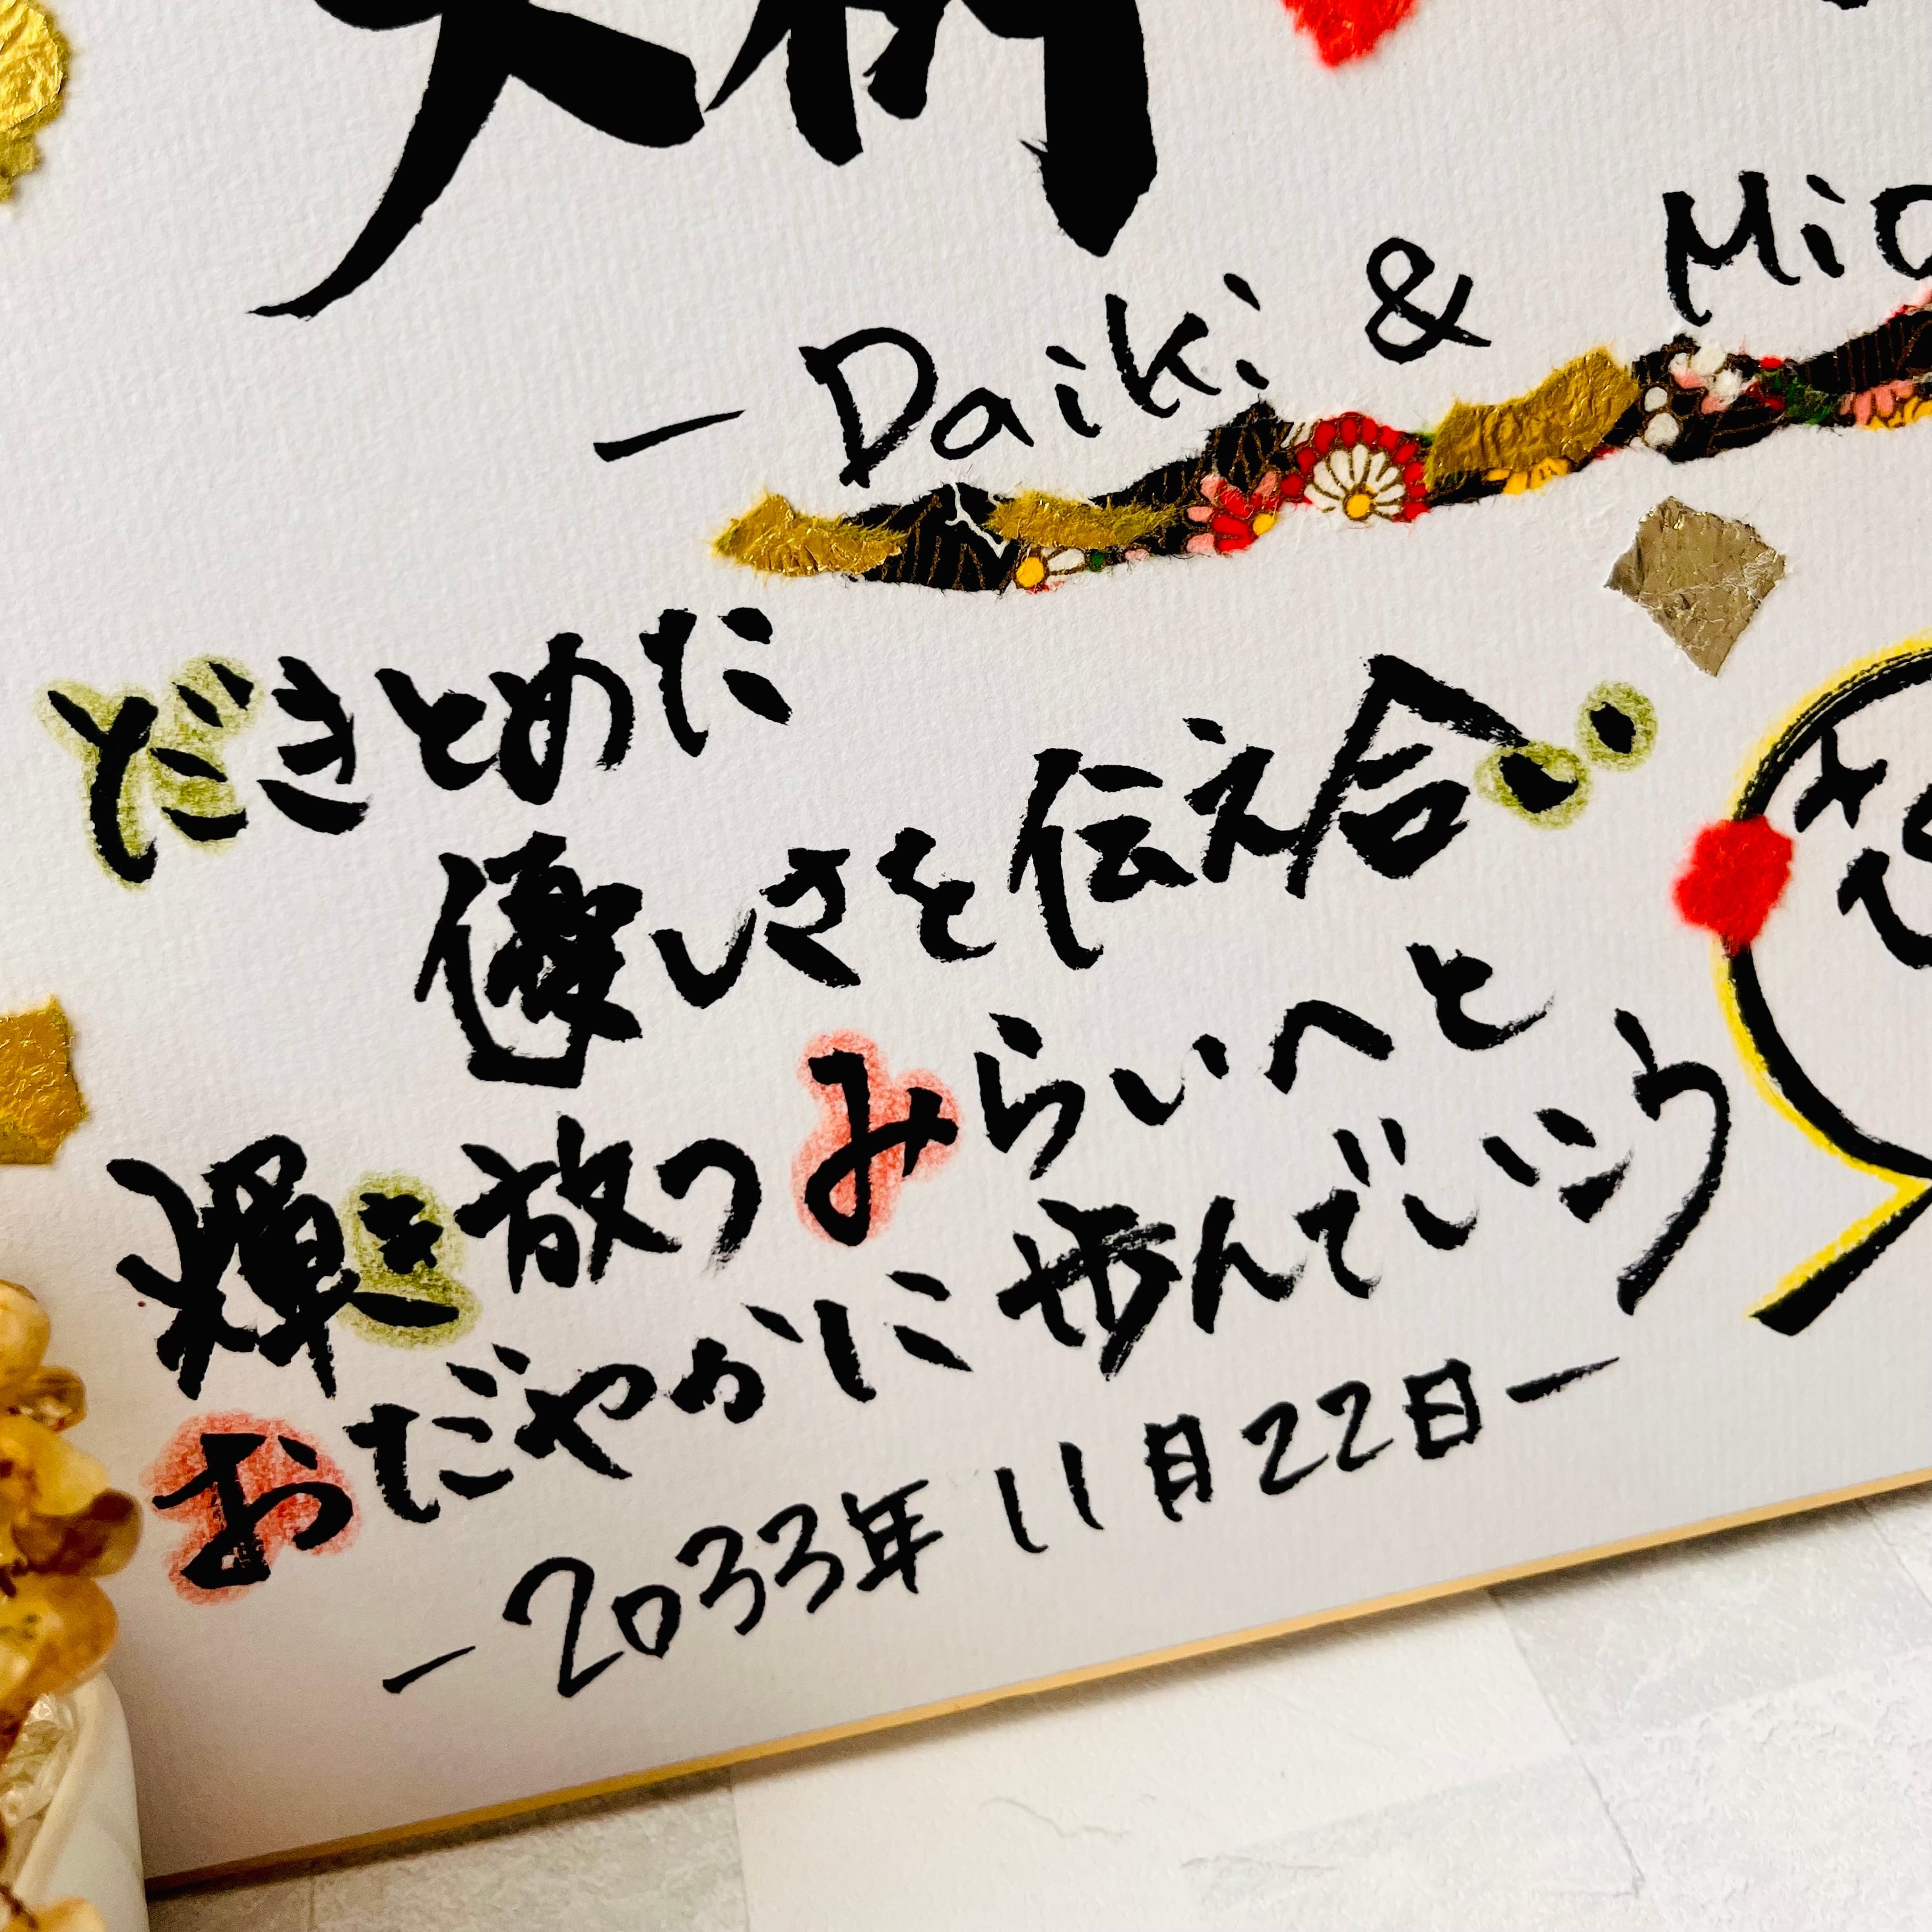 - Daiki & Mio
だきとめた
優しさを伝え合い
輝き放つみらいへと
おだやかに歩んでいこう
-2033年11月22日-